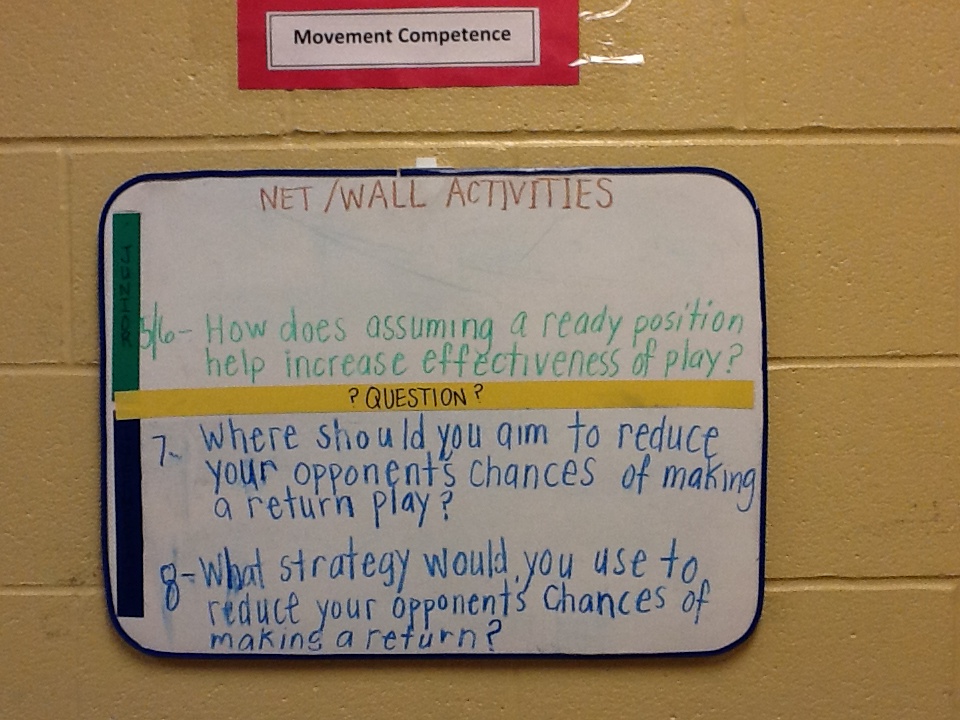 Movement Competence
NET/WALL ACTIVITIES
JUNIOR
5/6- How does assuming a ready position
help increase effectiveness of play?
? QUESTION ?
7- Where should you aim to reduce
your opponent's chances of making
a return play?
8- What strategy would you use to
reduce your opponent's chances of
making a return?